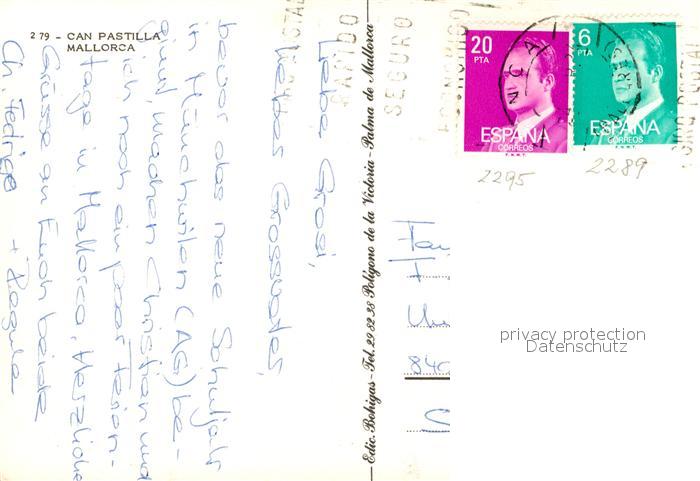 2 79 - CAN PASTILLA
MALLORCA
Liebe Grosi,
liebes Grossvater,
bevor das neue Schuljahr
in Münchwilen (AG) be-
ginnt, machen Christian und
ich noch ein paar Ferien-
tage in Mallorca. Herzliche
Grüsse an Euch beide
Ch. + Regula
Edic. Bohigas-Tel. 29 82 38 Polígono de la Victoria-Palma de Mallorca
RAPIDO
SEGURO
20
PTA
ESPAÑA
CORREOS
F.N.M.T.
6
PTA
ESPAÑA
CORREOS
F.N.M.T.
2295
2289
Fa
840
privacy protection
Datenschutz